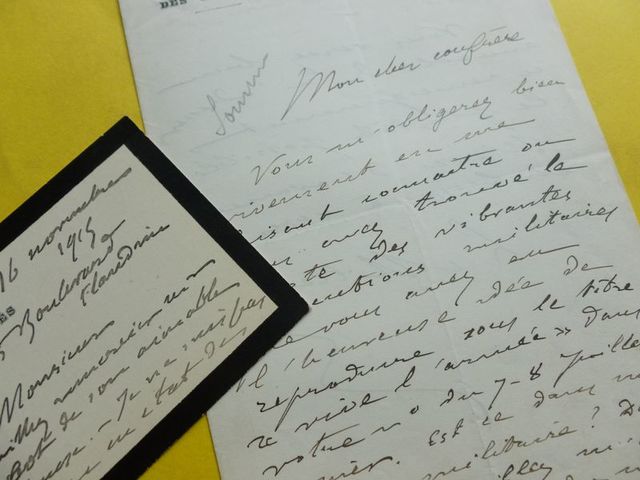 DES
Mon cher confrère
Vous m'obligerez bien
vivement en me
faisant connaître où
vous avez trouvé la
des vibrantes
militaires
vous avez eu
l'heureuse idée de
reproduire sous le titre
"vive l'armée" dans
votre no du 7-8 juillet
Est-ce dans
militaire?
16 novembre
1915
Boulevard
Flandrin
Monsieur
Veuillez remercier
de son aimable
Je ne suis pas
en état de